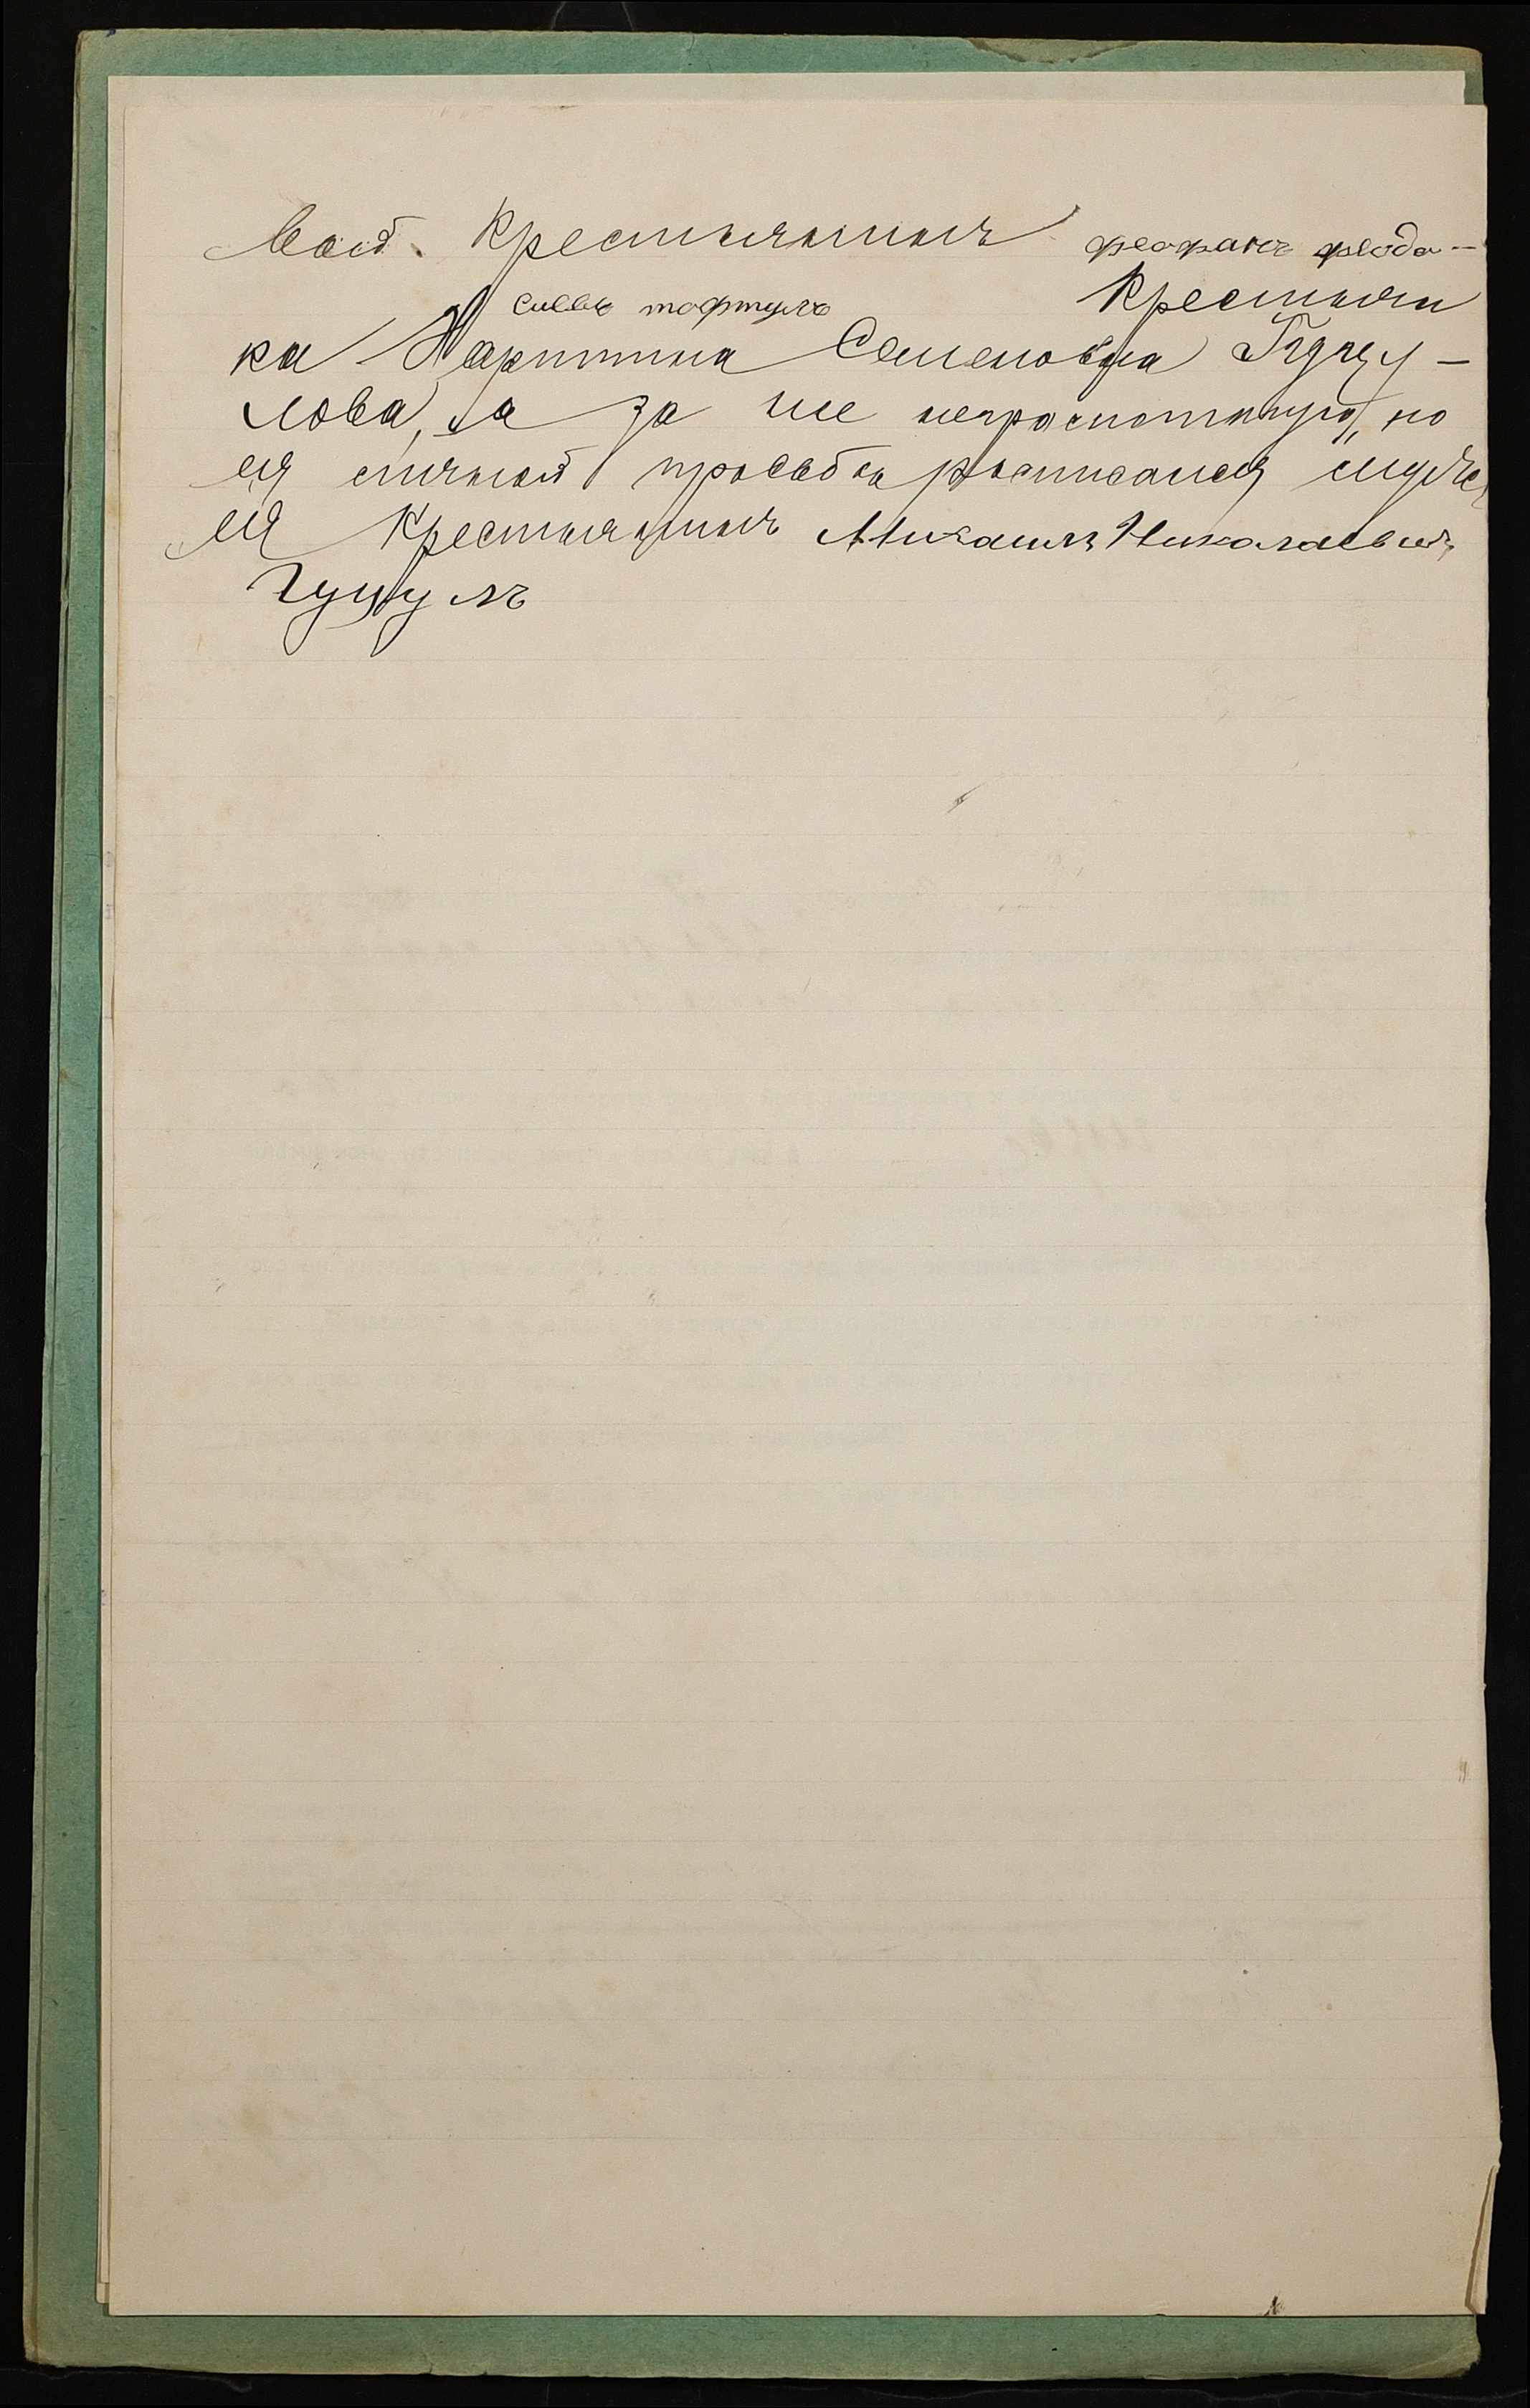 вой. Крестьянинъ феофанъ феодо-
сиевъ тофтулъ Крестьян
ка Харитина Семеновна Гуцу-
лова, а за нее неграмотную, по
ея личной просьбѣ росписался
ея Крестьянинъ Михаилъ Николаевичъ
Гуцулъ